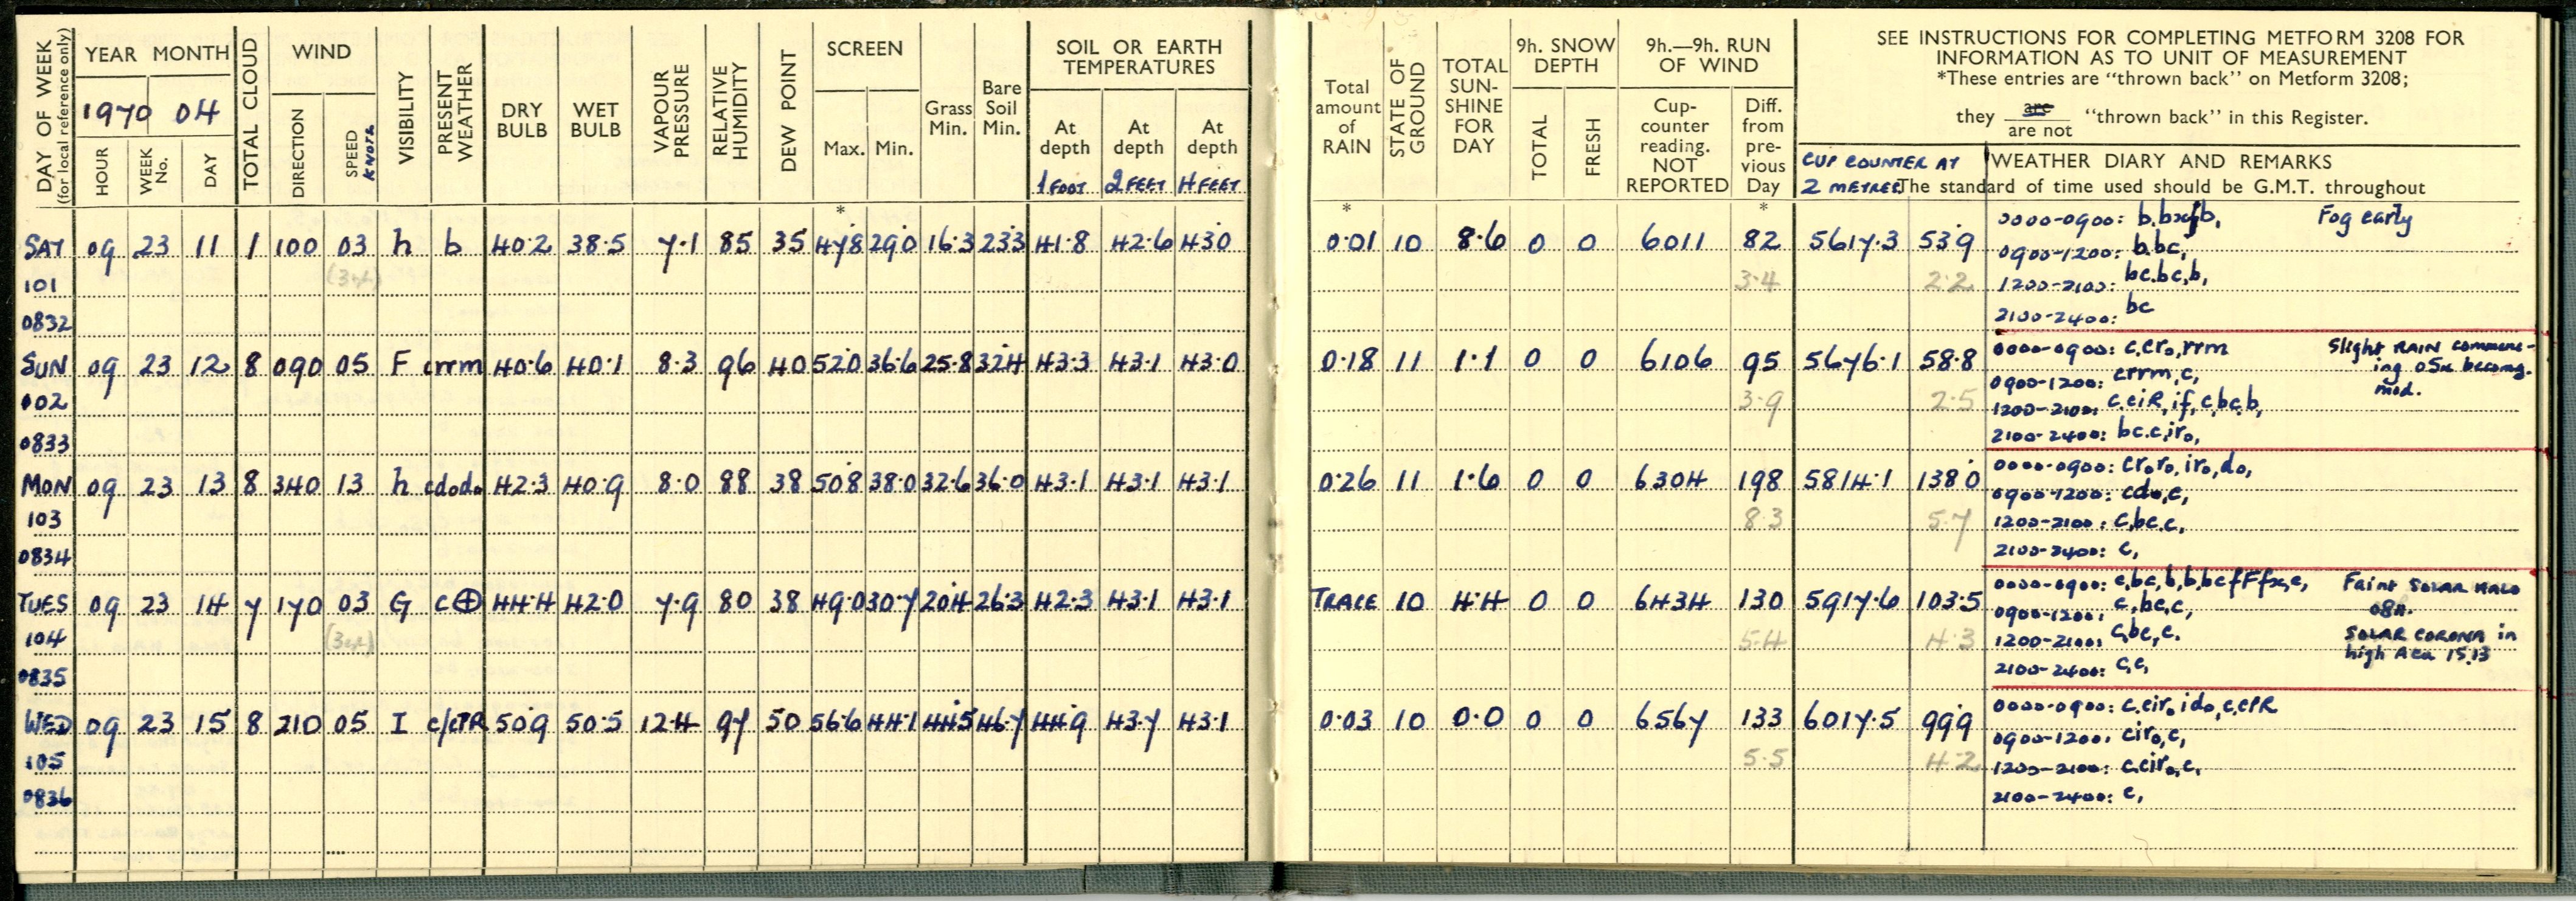 DAY OF WEEK
(for local reference only)
YEAR MONTH
1970 04
HOUR
WEEK No.
DAY
TOTAL CLOUD
WIND
DIRECTION
SPEED KNOTS
VISIBILITY
PRESENT WEATHER
DRY BULB
WET BULB
VAPOUR PRESSURE
RELATIVE HUMIDITY
DEW POINT
SCREEN
Max. Min.
Grass Min.
Bare Soil Min.
SOIL OR EARTH TEMPERATURES
At depth 1 FOOT
At depth 2 FEET
At depth 4 FEET
Total amount of RAIN
STATE OF GROUND
TOTAL SUN-SHINE FOR DAY
9h. SNOW DEPTH
TOTAL
FRESH
9h.—9h. RUN OF WIND
Cup-counter reading. NOT REPORTED
Diff. from pre-vious Day
SEE INSTRUCTIONS FOR COMPLETING METFORM 3208 FOR
INFORMATION AS TO UNIT OF MEASUREMENT
*These entries are "thrown back" on Metform 3208;
they are
are not "thrown back" in this Register.
CUP COUNTER AT
2 METRES
WEATHER DIARY AND REMARKS
The standard of time used should be G.M.T. throughout
* * *
SAT 09 23 11 1 100 03 h b 40.2 38.5 7.1 85 35 47.8 29.0 16.3 23.3 41.8 42.6 43.0 0.01 10 8.6 0 0 6011 82 5617.3 53.9
101 3.4 2.2
0832
0000-0900: Fog early
0900-1200: b.bc,
1200-2100: bc.bc,b,
2100-2400: bc
SUN 09 23 12 8 090 05 F crrm 40.6 40.1 8.3 96 40 52.0 36.6 25.8 32.4 43.3 43.1 43.0 0.18 11 1.1 0 0 6106 95 5676.1 58.8
3.9 2.5
0833
0000-0900: c,cr₀,rrm Slight RAIN commenc-
ing 05h becomg.
mod.
0900-1200: crrm,c,
1200-2100: c.ciR,if,c,bc,b,
2100-2400: bc.c,ir₀,
MON 09 23 13 8 340 13 h cd₀d₀ 42.3 40.9 8.0 88 38 50.8 38.0 32.6 36.0 43.1 43.1 43.1 0.26 11 1.6 0 0 6304 198 5814.1 138.0
103 8.3 5.7
0834
0000-0900: cr₀r₀,ir₀,d₀,
0900-1200: cd₀,c,
1200-2100: c,bc.c,
2100-2400: c,
TUES 09 23 14 7 170 03 G c⊕ 44.4 42.0 7.9 80 38 49.0 30.7 20.4 26.3 42.3 43.1 43.1 TRACE 10 4.4 0 0 6434 130 5917.6 103.5
104 5.4 4.3
0835
0000-0900: Faint SOLAR HALO
08h.
0900-1200: c,bc,c,
1200-2100: c,bc,c. SOLAR CORONA in
high Acu 15.13
2100-2400: c,c,
WED 09 23 15 8 210 05 I c/cPR 50.9 50.5 12.4 97 50 56.6 44.1 44.5 46.7 44.9 43.7 43.1 0.03 10 0.0 0 0 6567 133 6017.5 99.9
105 5.5 4.2
0836
0000-0900: c.cir₀ id₀,c,cPR
0900-1200: cir₀,c,
1200-2100: c.cir₀,c,
2100-2400: c,